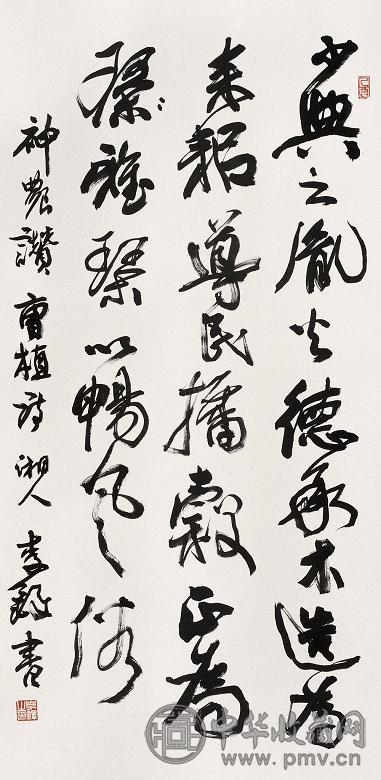 少典之胤火德承木造為
耒耜導民播穀正為
雅琴以暢風俗
神農讚 曹植詩 湘人 李鐸書
中华收藏网
www.pmv.cn